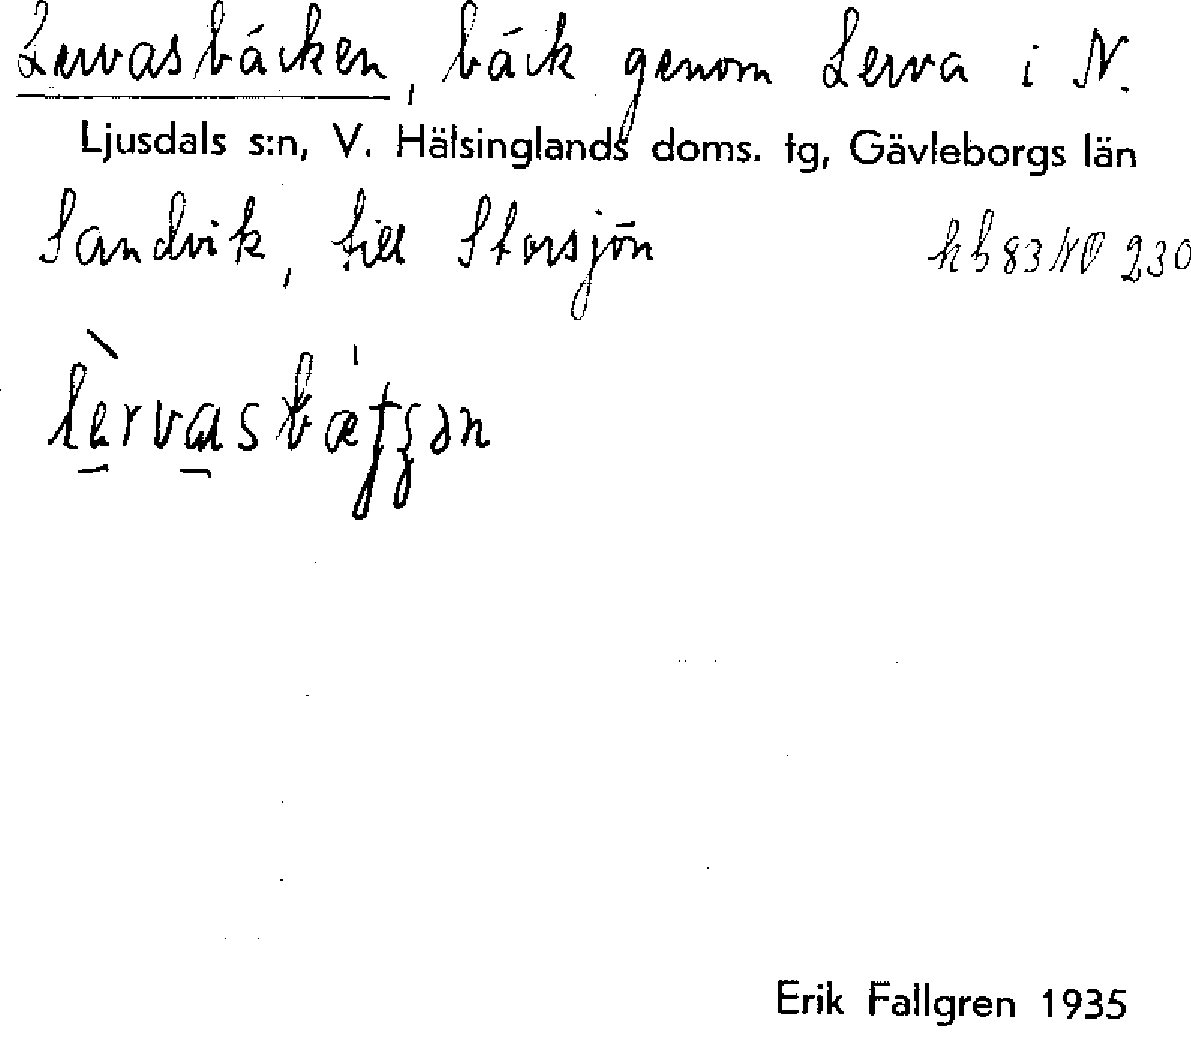 Lervasbäcken, bäck genom Lerva i N.
Ljusdals s:n, V. Hälsinglands doms. tg, Gävleborgs län
Sandvik, till Storsjön hb 83 NO 230
Erik Fallgren 1935